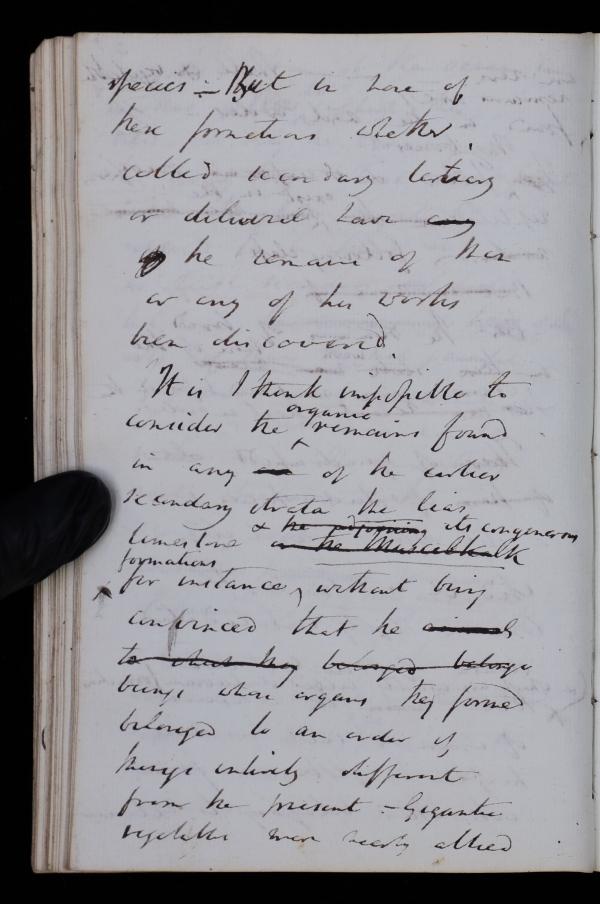 species - But in none of
these formations whether
called secondary tertiary
or diluvial have any
the remains of Man
or any of his works
been discovered.
It is I think impossible to
consider the organic remains found
in any of the earlier
secondary strata the lias
limestone & its congenerous
formations
for instance, without being
convinced that the
to which they belonged belongs
beings whose organs they formed
belonged to an order of
things entirely different
from the present - Gigantic
vegetables more nearly allied